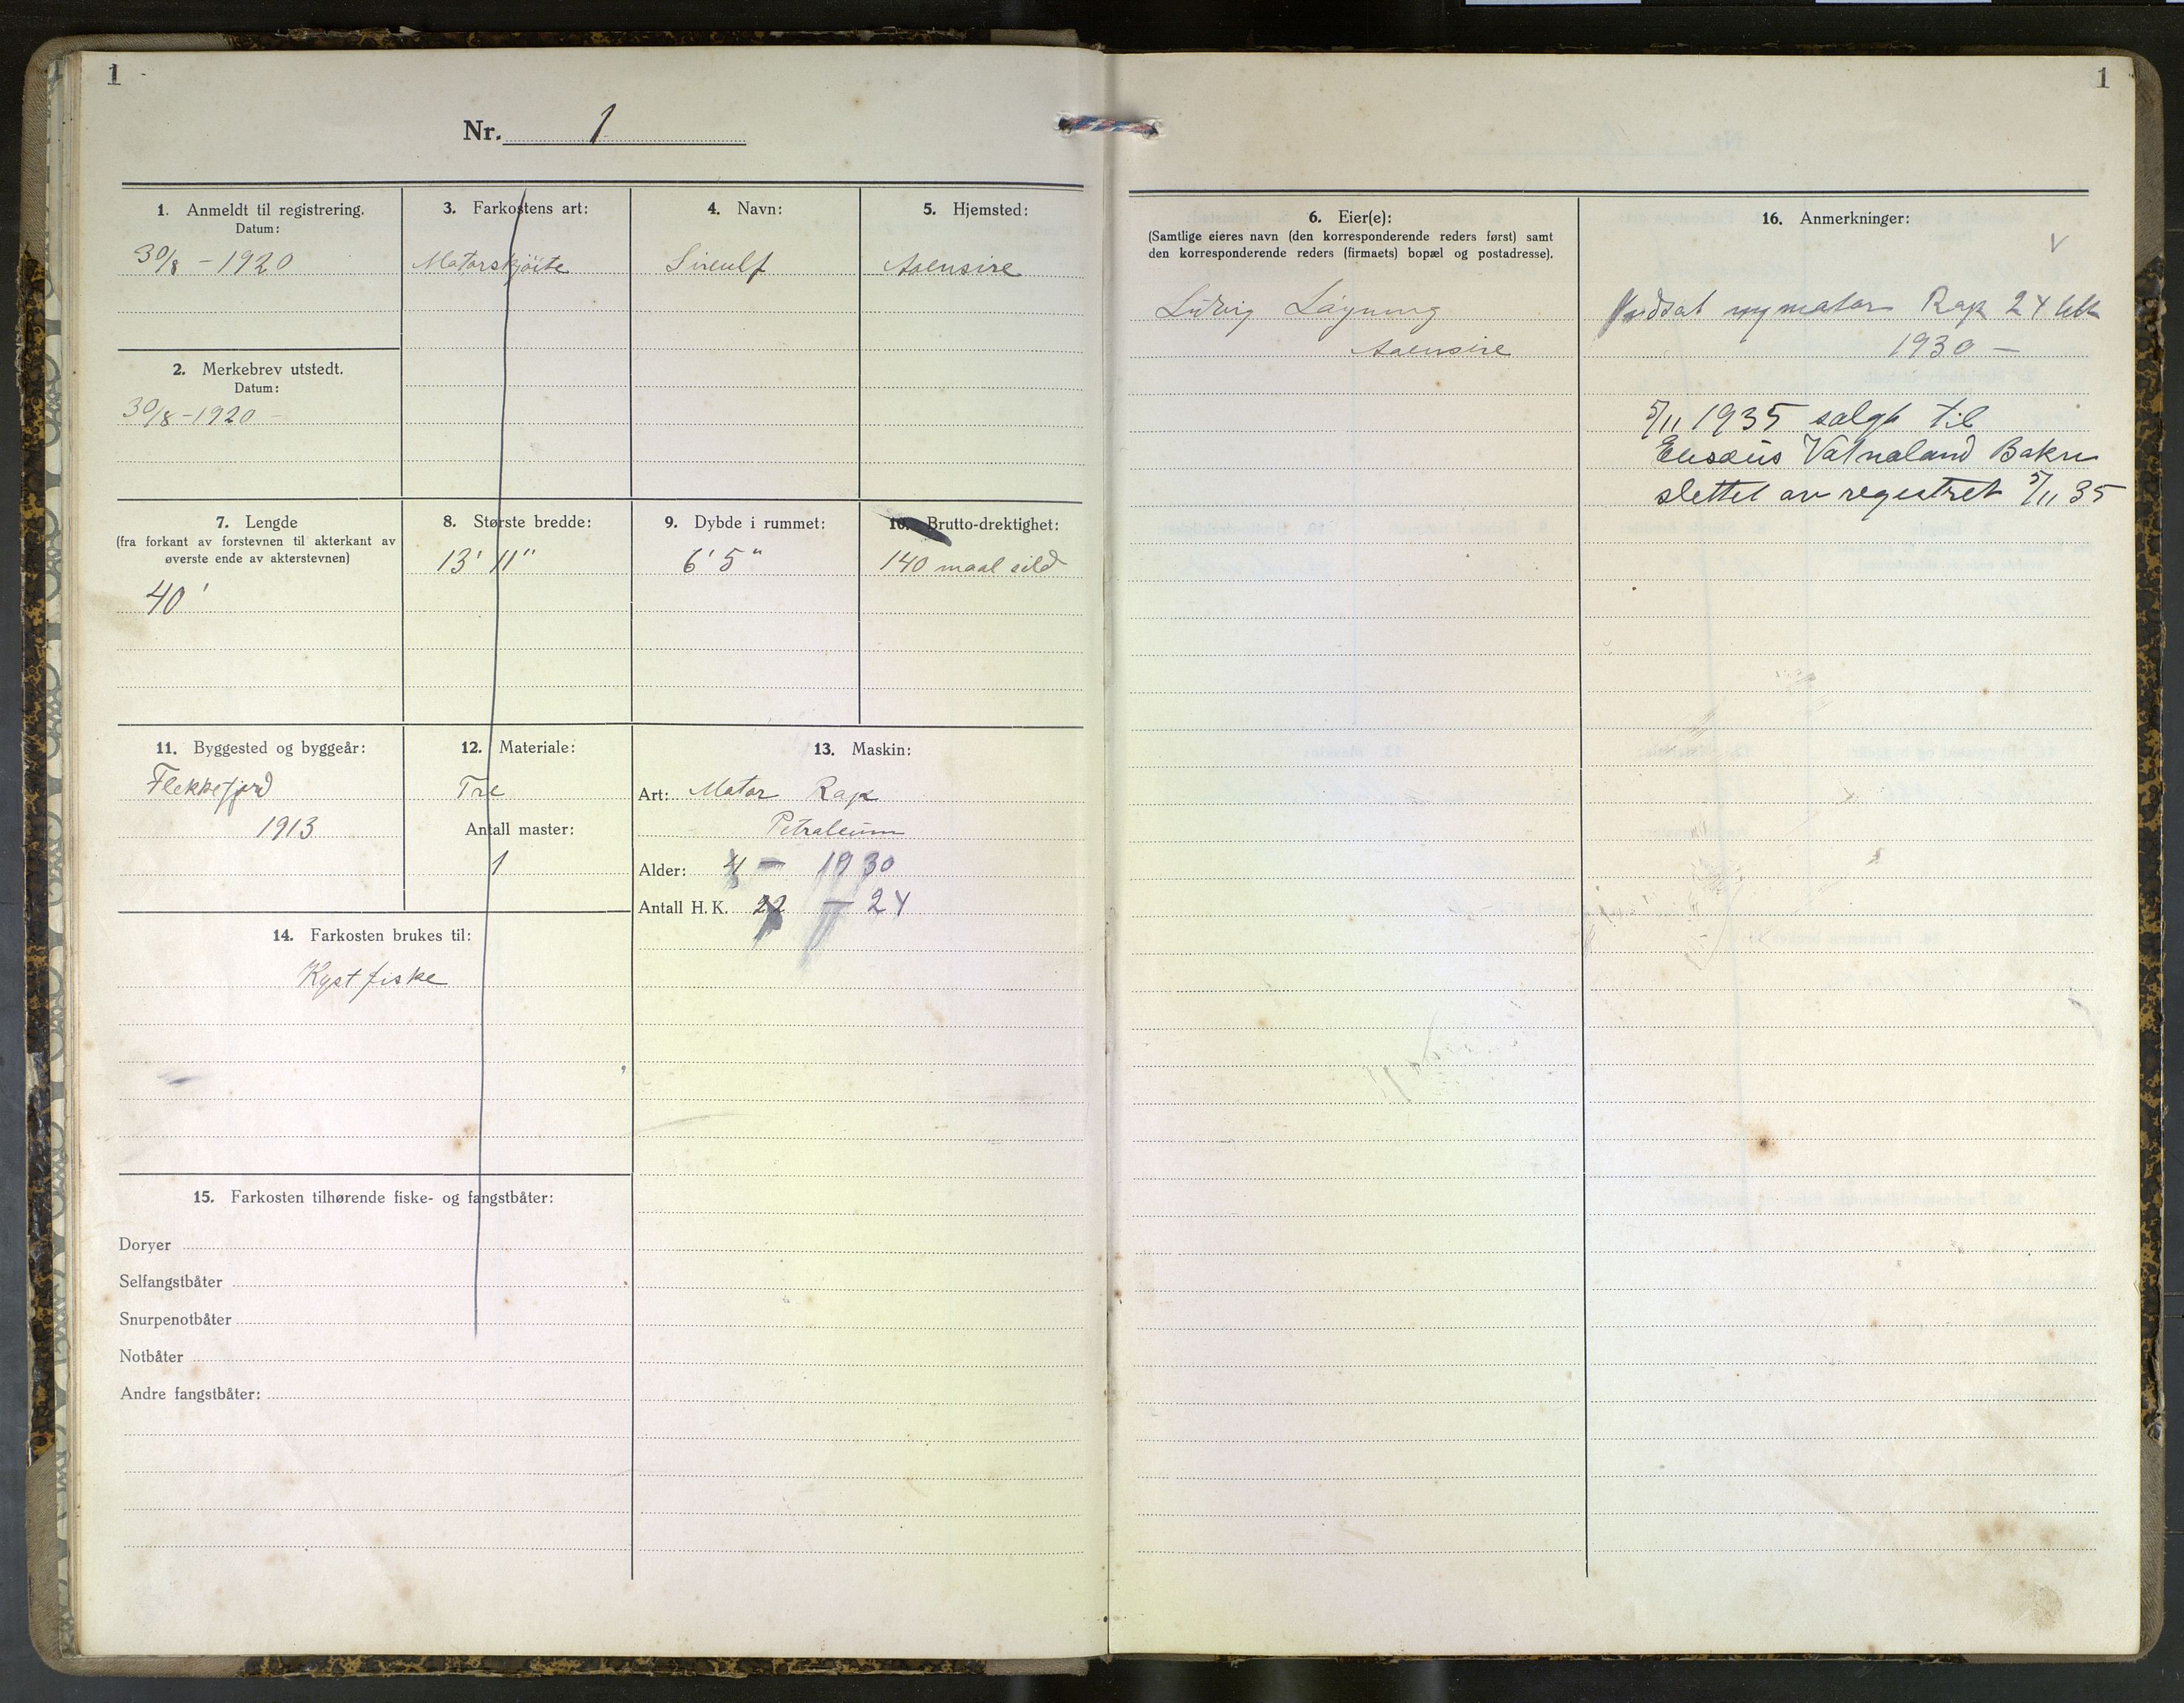 1
Nr. 1
1. Anmeldt til registrering.
Datum:
30/8 - 1920
2. Merkebrev utstedt.
Datum:
30/8 - 1920 -
3. Farkostens art:
Motorskjöite
4. Navn:
Sireulf
5. Hjemsted:
Aaensire
7. Lengde
(fra forkant av forstevnen til akterkant av
øverste ende av akterstevnen)
40'
8. Største bredde:
13' 11"
9. Dybde i rummet:
6' 5"
10. Brutto-drektighet:
140 maal sild
11. Byggested og byggeår:
Flekkefjord
1913
12. Materiale:
Tre
Antall master:
1
13. Maskin:
Art: Motor Rap
Petroleum
Alder: - 1930
Antall H. K. 22 - 24
14. Farkosten brukes til:
Kystfiske
15. Farkosten tilhørende fiske- og fangstbåter:
Doryer
Selfangstbåter
Snurpenotbåter
Notbåter
Andre fangstbåter:
1
6. Eier(e):
(Samtlige eieres navn (den korresponderende reders først) samt
den korresponderende reders (firmaets) bopæl og postadresse).
Ludvig
Aaensire
16. Anmerkninger:
V
Indsat ny motor Rap 24
1930 -
5/11 1935 solgt til
Elisæus Vatnaland
slettet av registret 5/11 35